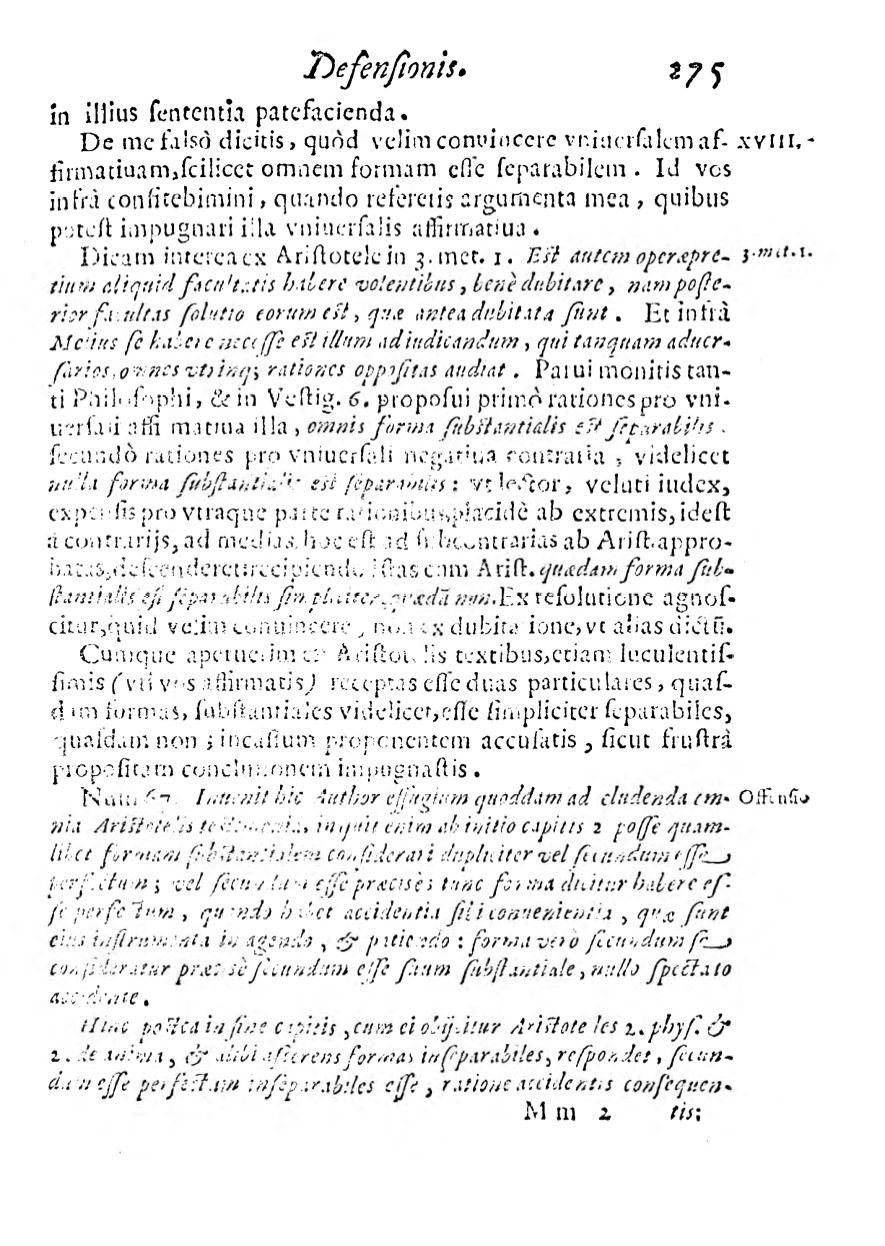 Defensionis. 275
in illius sententia patefacienda.
De me falsò dicitis, quòd velim conuincere vniuersalem af- XVIII.
firmatiuam, scilicet omnem formam esse separabilem. Id vos
infrà confitebimini, quando referetis argumenta mea, quibus
potest impugnari illa vniuersalis affirmatiua.
Dicam interea ex Aristotele in 3. met. 1. Est autem operæpre- 3. met. 1.
tium aliquid facultatis habere volentibus, benè dubitare, nam poste-
rior facultas solutio eorum est, quæ antea dubitata sunt. Et infrà
Melius se habere necesse est illum ad iudicandum, qui tanquam aduer-
sarios, omnes vtrinq; rationes oppositas audiat. Parui monitis tan-
ti Philosophi, & in Vestig. 6. proposui primò rationes pro vni-
uersali affirmatiua illa, omnis forma substantialis est separabilis.
secundò rationes pro vniuersali negatiua contraria, videlicet
nulla forma substantialis est separabilis: vt lector, veluti iudex,
expensis pro vtraque parte rationibus, placidè ab extremis, idest
a contrarijs, ad medias, hoc est ad subcontrarias ab Arist. appro-
batas, descenderet: recipiendo istas cum Arist. quædam forma sub-
stantialis est separabilis simpliciter, quædã non. Ex resolutione agnos-
citur, quid velim conuincere, non ex dubitatione, vt alias dictũ.
Cumque aperuerim ex Aristotelis textibus, etiam luculentis-
simis (vti vos affirmatis) receptas esse duas particulares, quas-
dam formas, substantiales videlicet, esse simpliciter separabiles,
quasdam non; incassum proponentem accusatis, sicut frustrà
propositam conclusionem impugnastis.
Num 67. Inuenit hic Author effugium quoddam ad eludenda om- Offensio
nia Aristotelis testimonia, inquit enim ab initio capitis 2 posse quam-
libet formam substantialem considerari dupliciter vel secundum esse
perfectum; vel secundum esse præcisè; tunc forma dicitur habere es-
se perfectum, quando habet accidentia sibi conuenientia, quæ sunt
eius instrumenta in agendo, & patiendo: forma verò secundum se
consideratur præcisè secundum esse suum substantiale, nullo spectato
accidente.
Hinc postea in fine capitis, cum ei obijcitur Aristoteles 2. phys. &
2. de anima, & alibi asserens formas inseparabiles, respondet, secun-
dum esse perfectum inseparabiles esse, ratione accidentis consequen-
M m 2 tis;